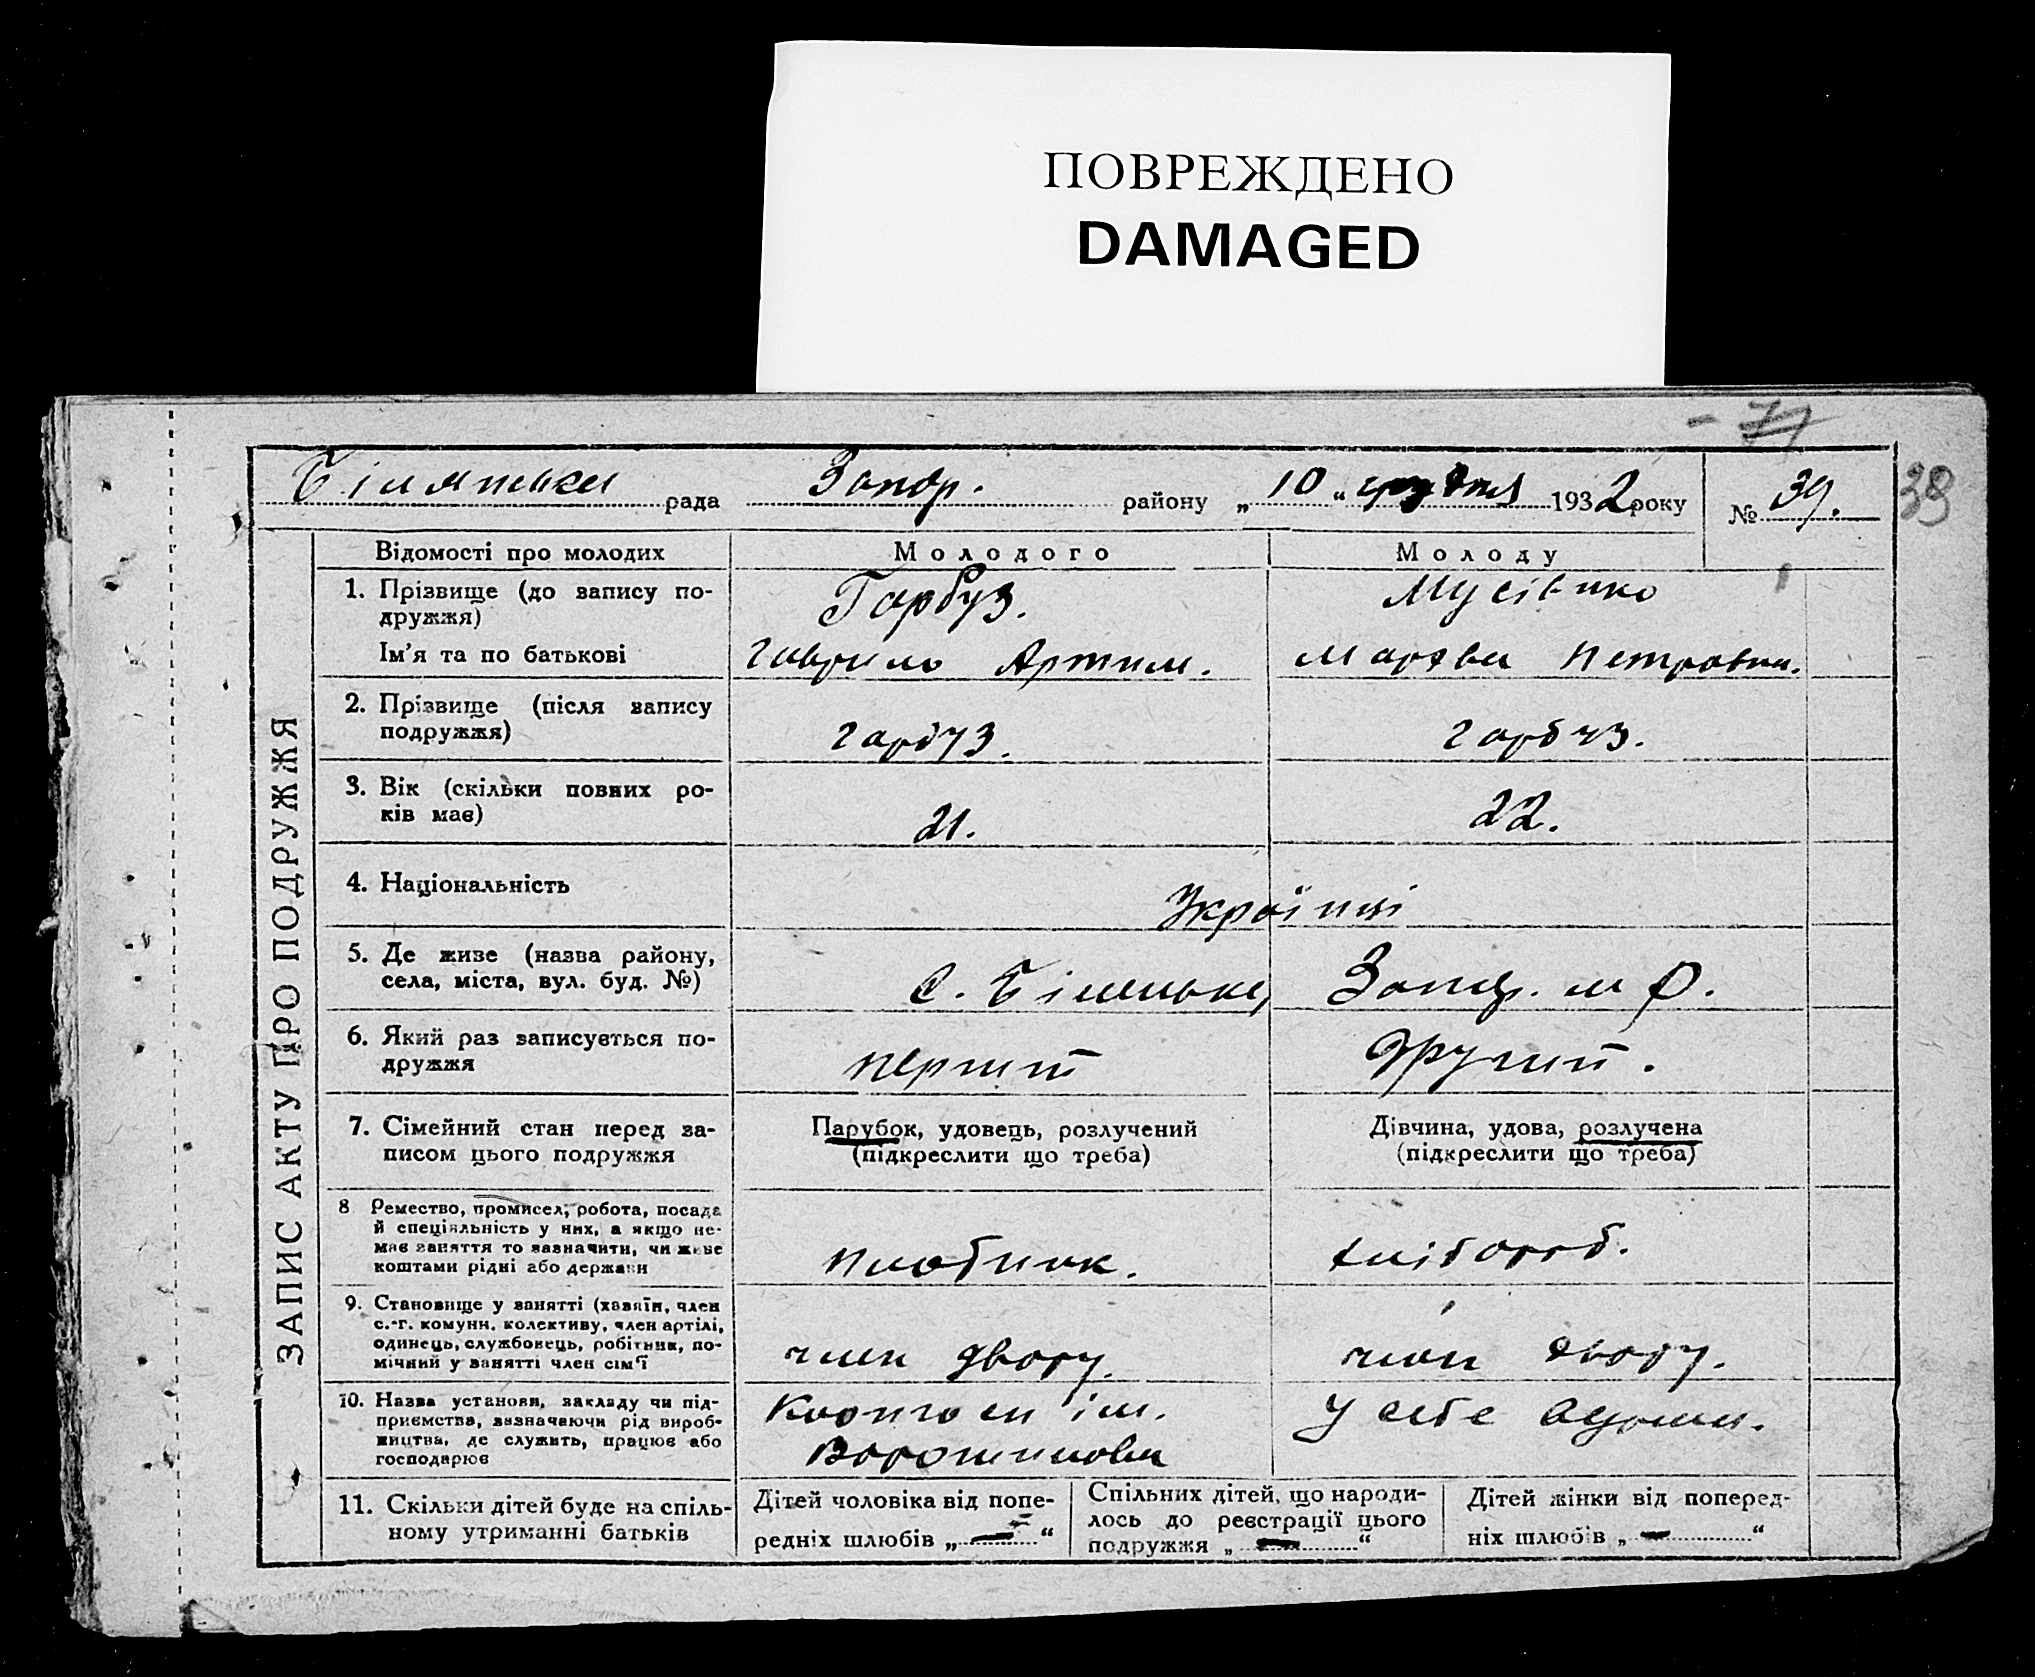 ПОВРЕЖДЕНО
DAMAGED
- 71
рада Запор. району „ 10 “ грудня 1932 року № 39.
39
ЗАПИС АКТУ ПРО ПОДРУЖЖЯ
Відомості про молодих
Молодого
Молоду
1. Прізвище (до запису по-
дружжя)
Гарбуз.
Мусієнко
Ім'я та по батькові
Гаврило Артим.
Марфа Петровна.
2. Прізвище (після запису
подружжя)
Гарбуз.
Гарбуз.
3. Вік (скільки повних ро-
ків має)
21.
22.
4. Національність
Українці
5. Де живе (назва району,
села, міста, вул. буд. №)
С.
6. Який раз записується по-
дружжя
перший
другий.
7. Сімейний стан перед за-
писом цього подружжя
Парубок, удовець, розлучений
(підкреслити що треба)
Дівчина, удова, розлучена
(підкреслити що треба)
8 Ремество, промисел, робота, посада
й спеціяльність у них, а якщо не-
має заняття то зазначити, чи живе
коштами рідні або держави
плотник.
хлібороб.
9. Становище у занятті (хазяїн, член
с.-г. комуни, колективу, член артілі,
одинець, службовець, робітник, по-
мічний у занятті член сім'ї
член двору.
член двору.
10. Назва установи, закладу чи під-
приємства, зазначаючи рід вироб-
ництва, де служить, працює або
господарює
ім.
Ворошилова
у себе вдома.
11. Скільки дітей буде на спіль-
ному утриманні батьків
Дітей чоловіка від попе-
редніх шлюбів „ — “
Спільних дітей, що народи-
лось до реєстрації цього
подружжя „ — “
Дітей жінки від поперед-
ніх шлюбів „ — “